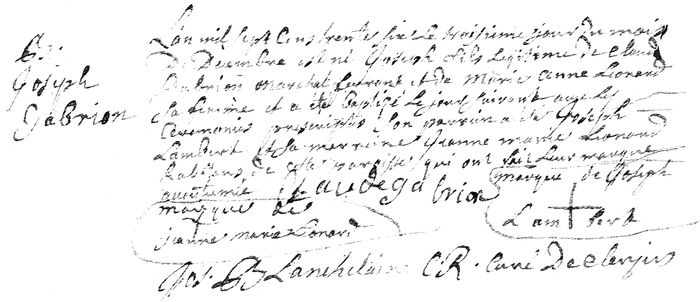 B:
Joseph
Gabrion
L'an mil sept cens trente six le troisieme jour du mois
De Decembre est né Joseph fils legitime de Claude
Gabrion marchal ferrant et de Marie Anne Lionard
sa femme et a eté baptizé le jour suivant avec les
Ceremonies prescrittes son parrain a eté Joseph
Lambert et sa marreine Jeanne marie Lionard
habitans de cette paroisse qui ont fait leur marque
Claude gabrion
marque de Joseph
marque de
Lam bert
jeanne marie Lionard
Jos: CR. Curé De